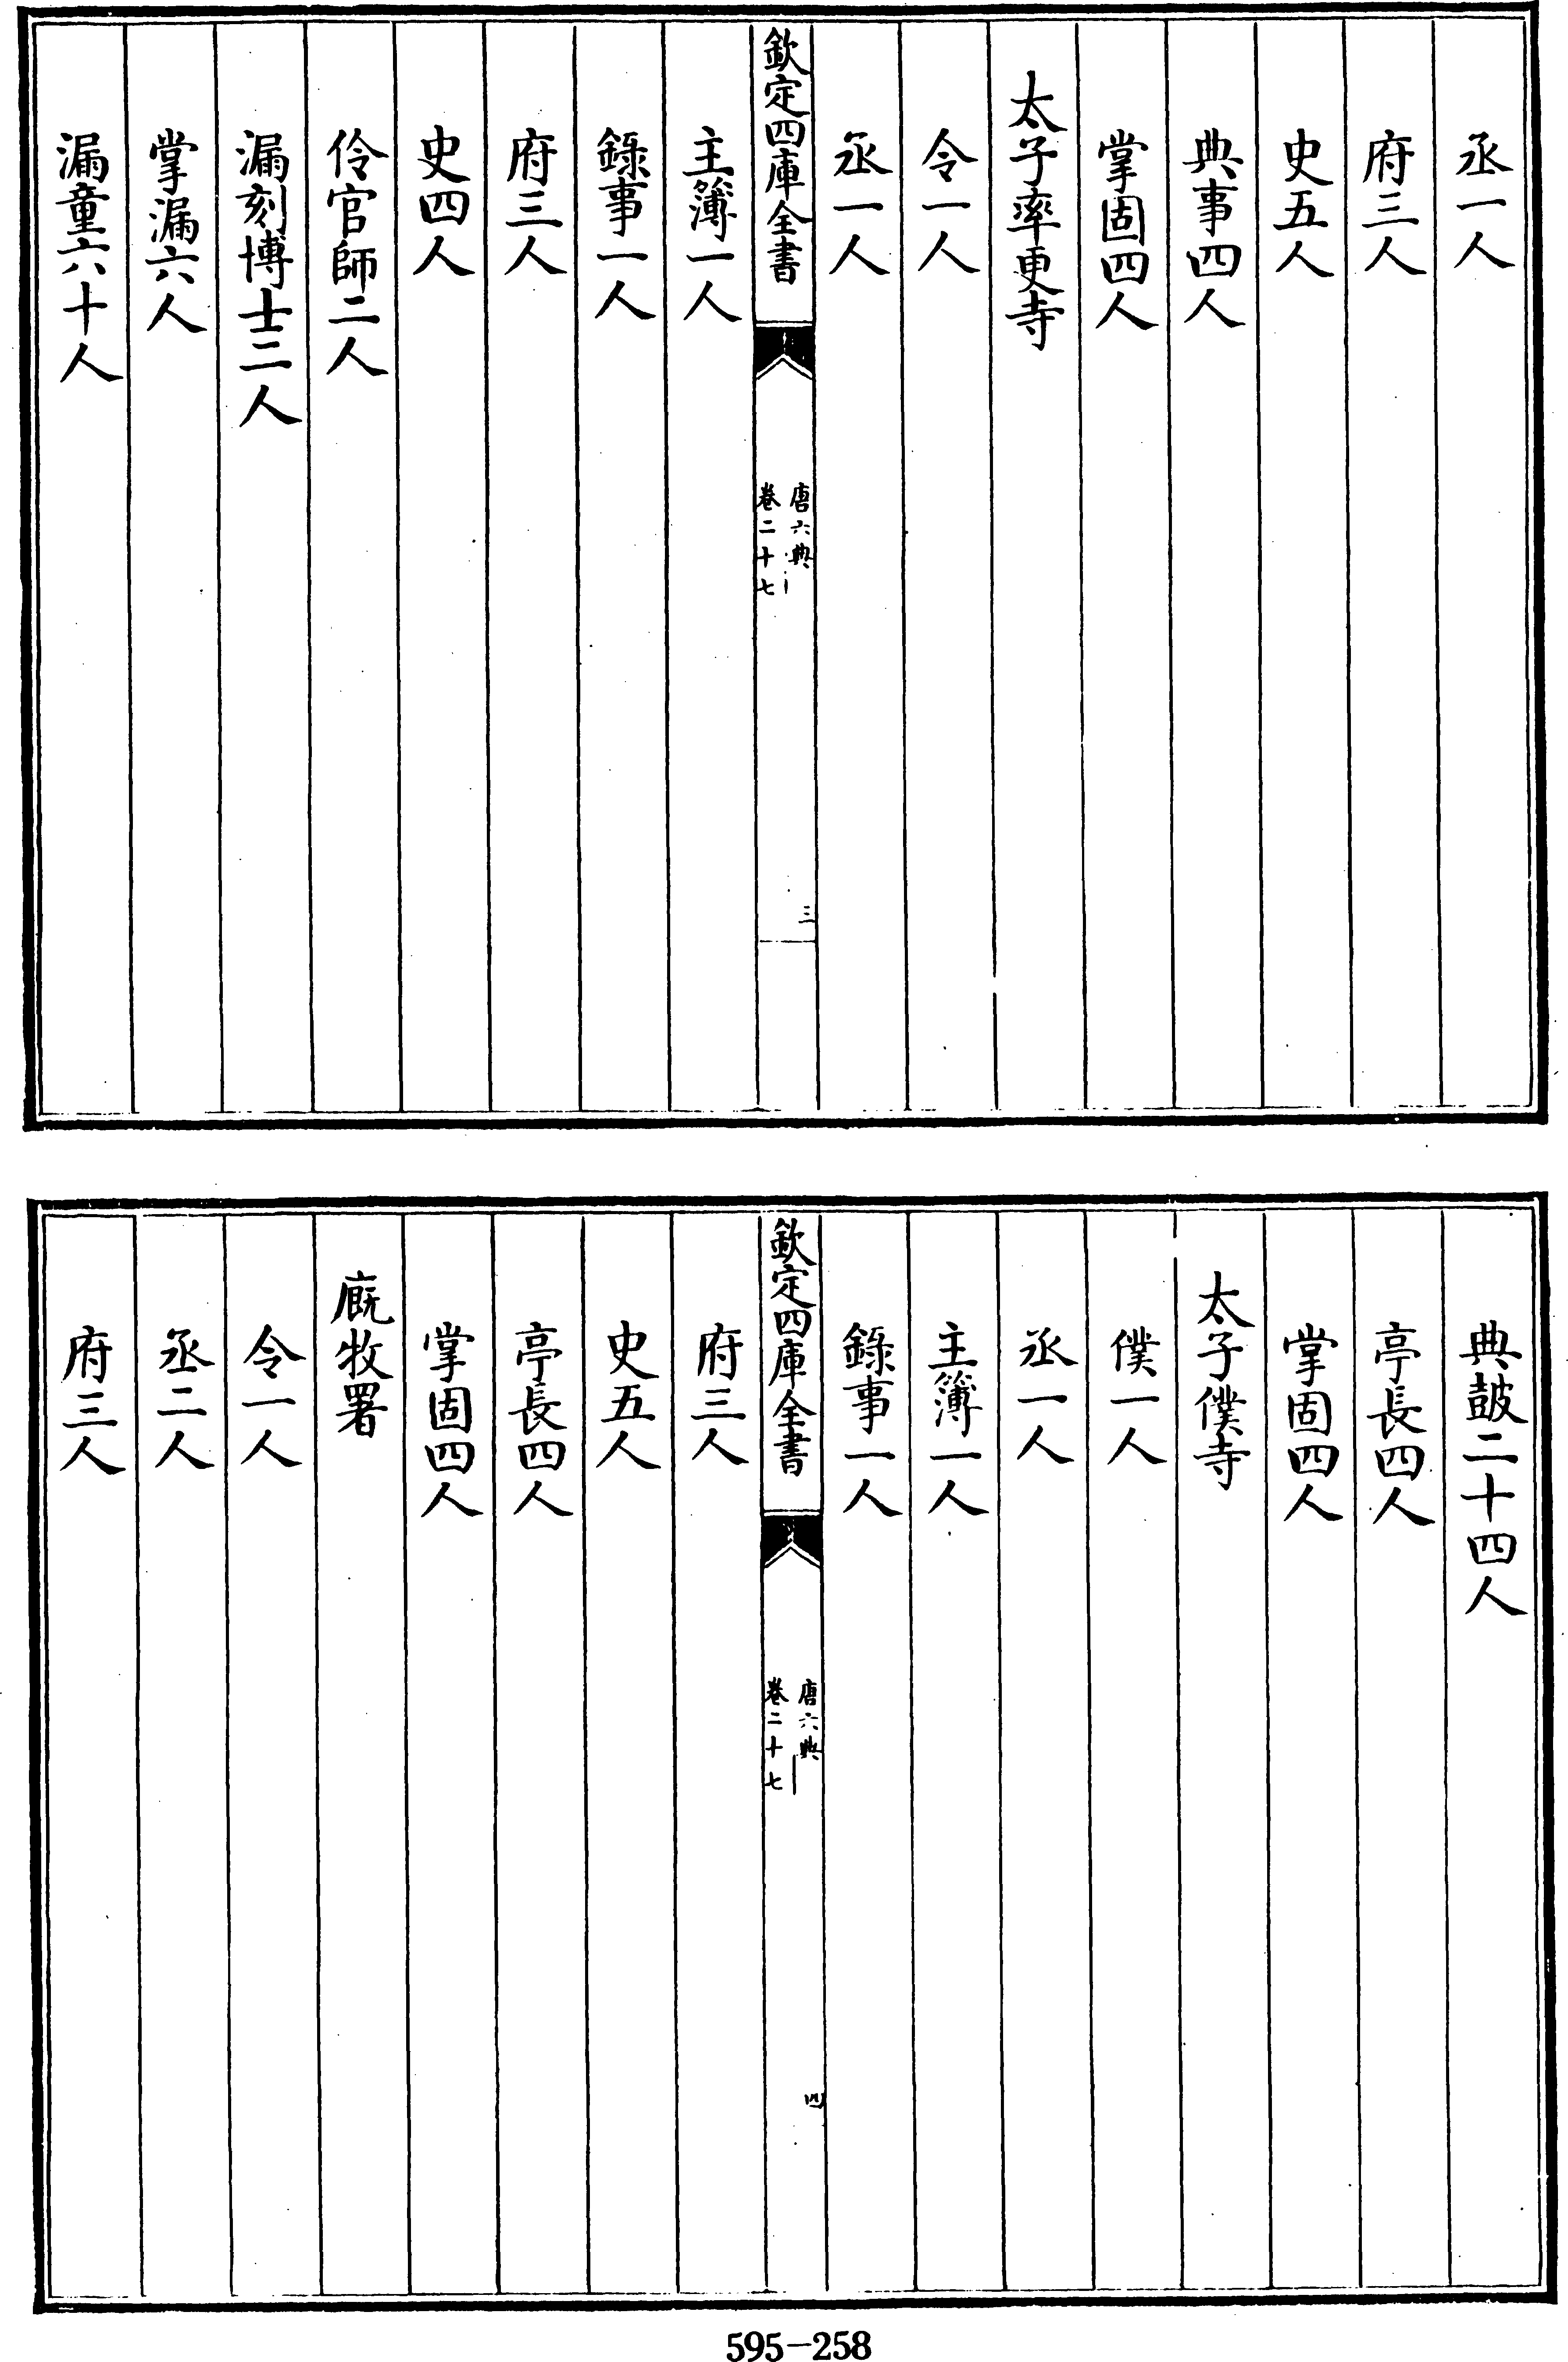 丞一人
府三人
史五人
典事四人
掌固四人
太子率更寺
令一人
丞一人
欽定四庫全書
唐六典
卷二十七
三
主簿一人
錄事一人
府三人
史四人
伶官師二人
漏刻博士二人
掌漏六人
漏童六十人
典鼓二十四人
亭長四人
掌固四人
太子僕寺
僕一人
丞一人
主簿一人
錄事一人
欽定四庫全書
唐六典
卷二十七
四
府三人
史五人
亭長四人
掌固四人
廐牧署
令一人
丞二人
府三人
595-258